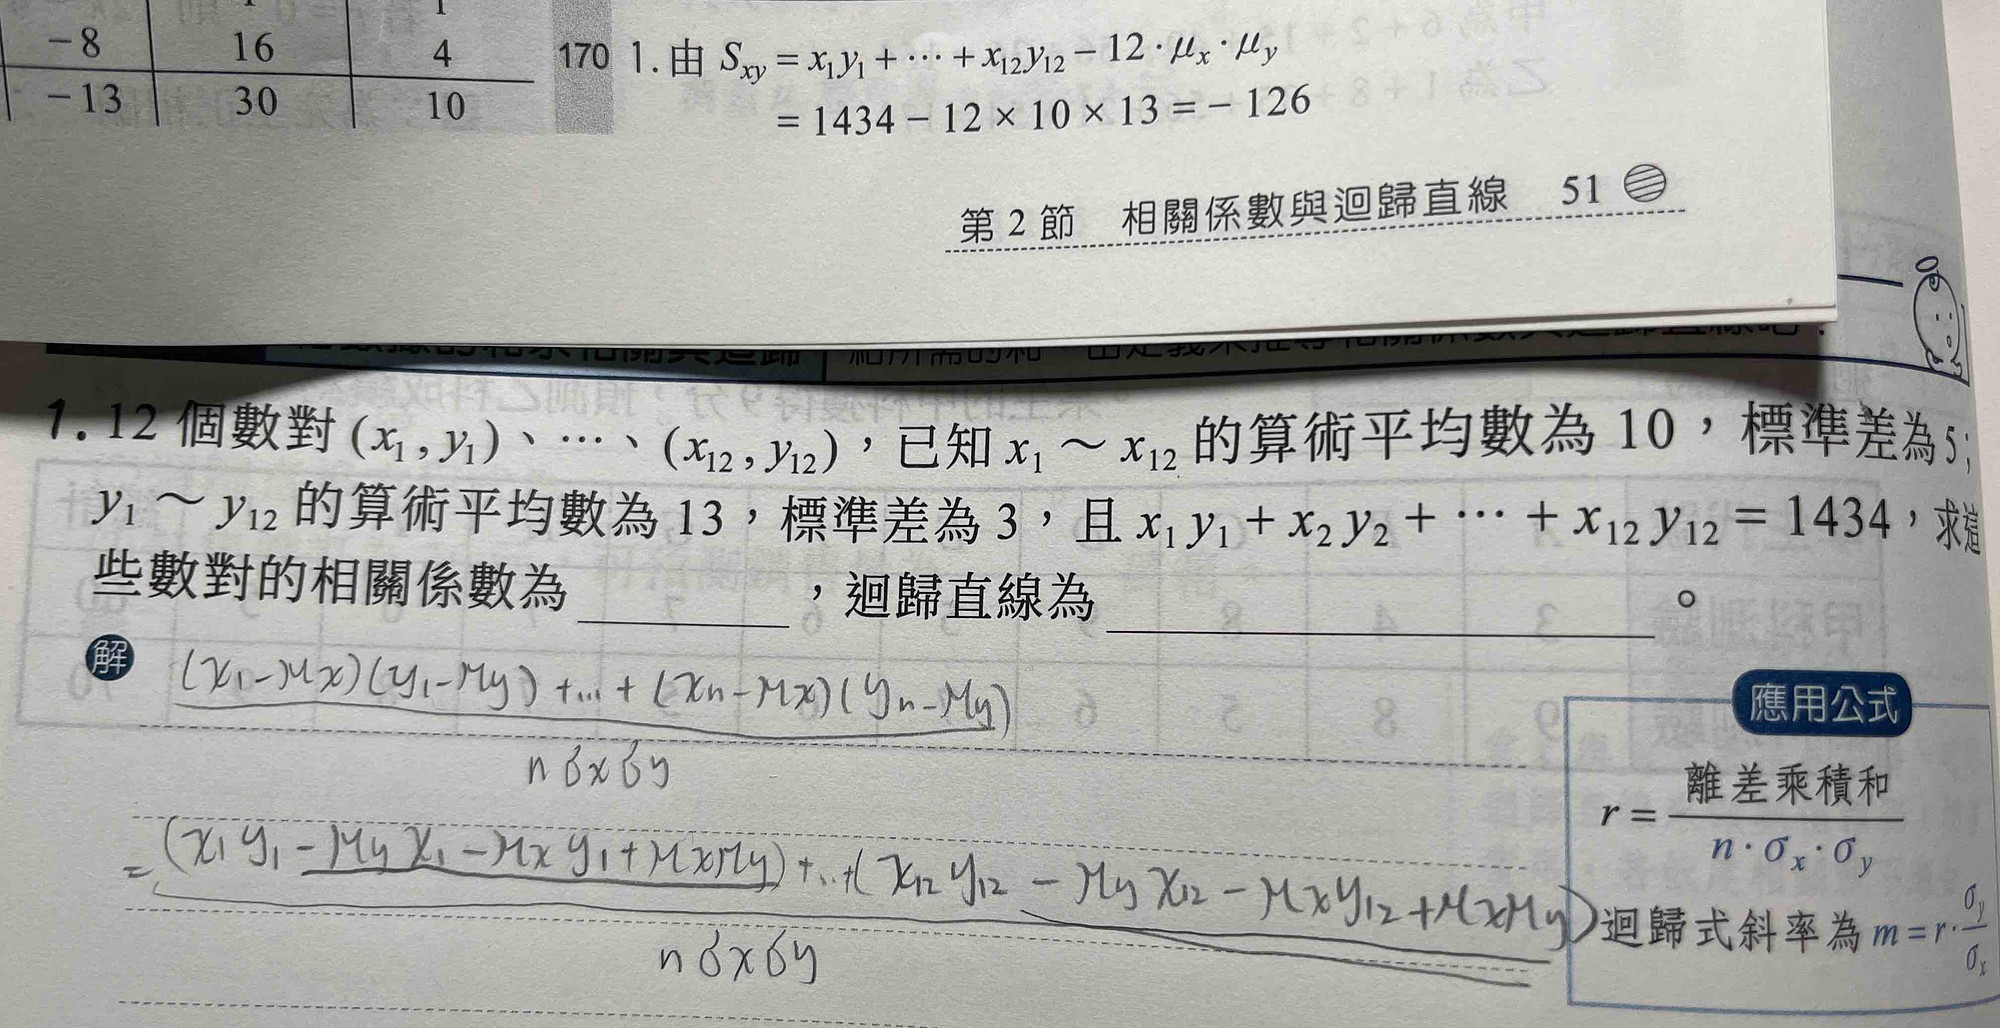 -8 16 4
-13 30 10
170 1. 由 Sxy = x₁y₁ + ⋯ + x₁₂y₁₂ − 12 · μx · μy
= 1434 − 12 × 10 × 13 = − 126
第 2 節 相關係數與迴歸直線 51
1. 12 個數對 (x₁, y₁)、⋯、(x₁₂, y₁₂),已知 x₁ ~ x₁₂ 的算術平均數為 10,標準差為 5;
y₁ ~ y₁₂ 的算術平均數為 13,標準差為 3,且 x₁y₁ + x₂y₂ + ⋯ + x₁₂y₁₂ = 1434,求這
些數對的相關係數為________,迴歸直線為________________。
解
(x₁-μx)(y₁-μy) + ... + (xn-μx)(yn-μy)
nσxσy
= (x₁y₁ - μyx₁ - μxy₁ + μxμy) + ... + (x₁₂y₁₂ - μyx₁₂ - μxy₁₂ + μxμy)
nσxσy
應用公式
r = 離差乘積和
n · σx · σy
迴歸式斜率為 m = r · σy/σx